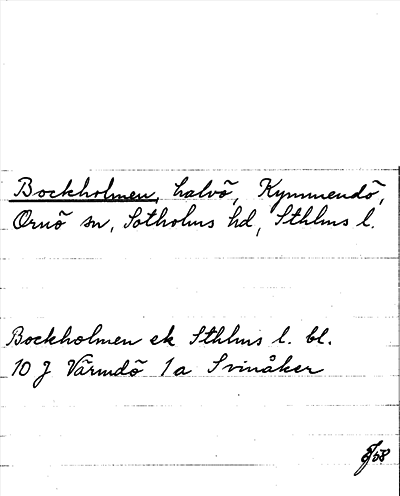 Bockholmen, halvö, Kymmendö,
Ornö sn, Sotholms hd, Sthlms l.
Bockholmen ek Sthlms l. bl.
10 J Värmdö 1a Svinåker